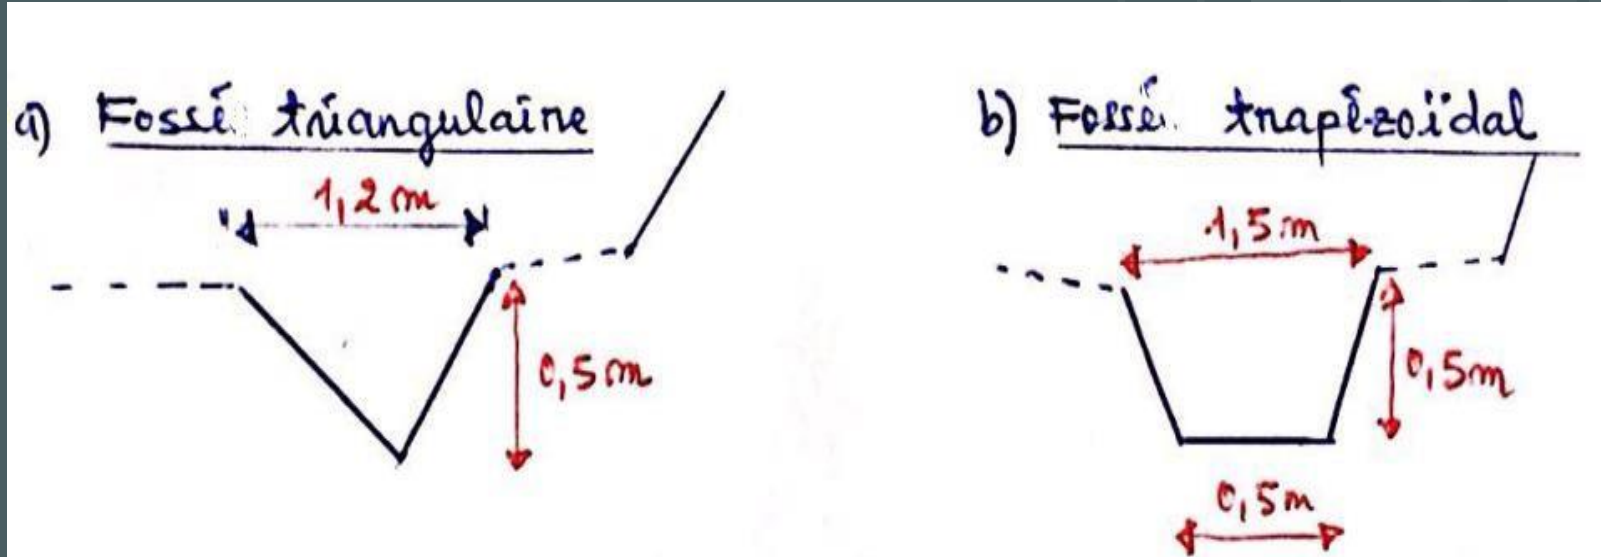 a) Fossé triangulaire
1,2 m
0,5 m
b) Fossé trapézoïdal
1,5 m
0,5 m
0,5 m